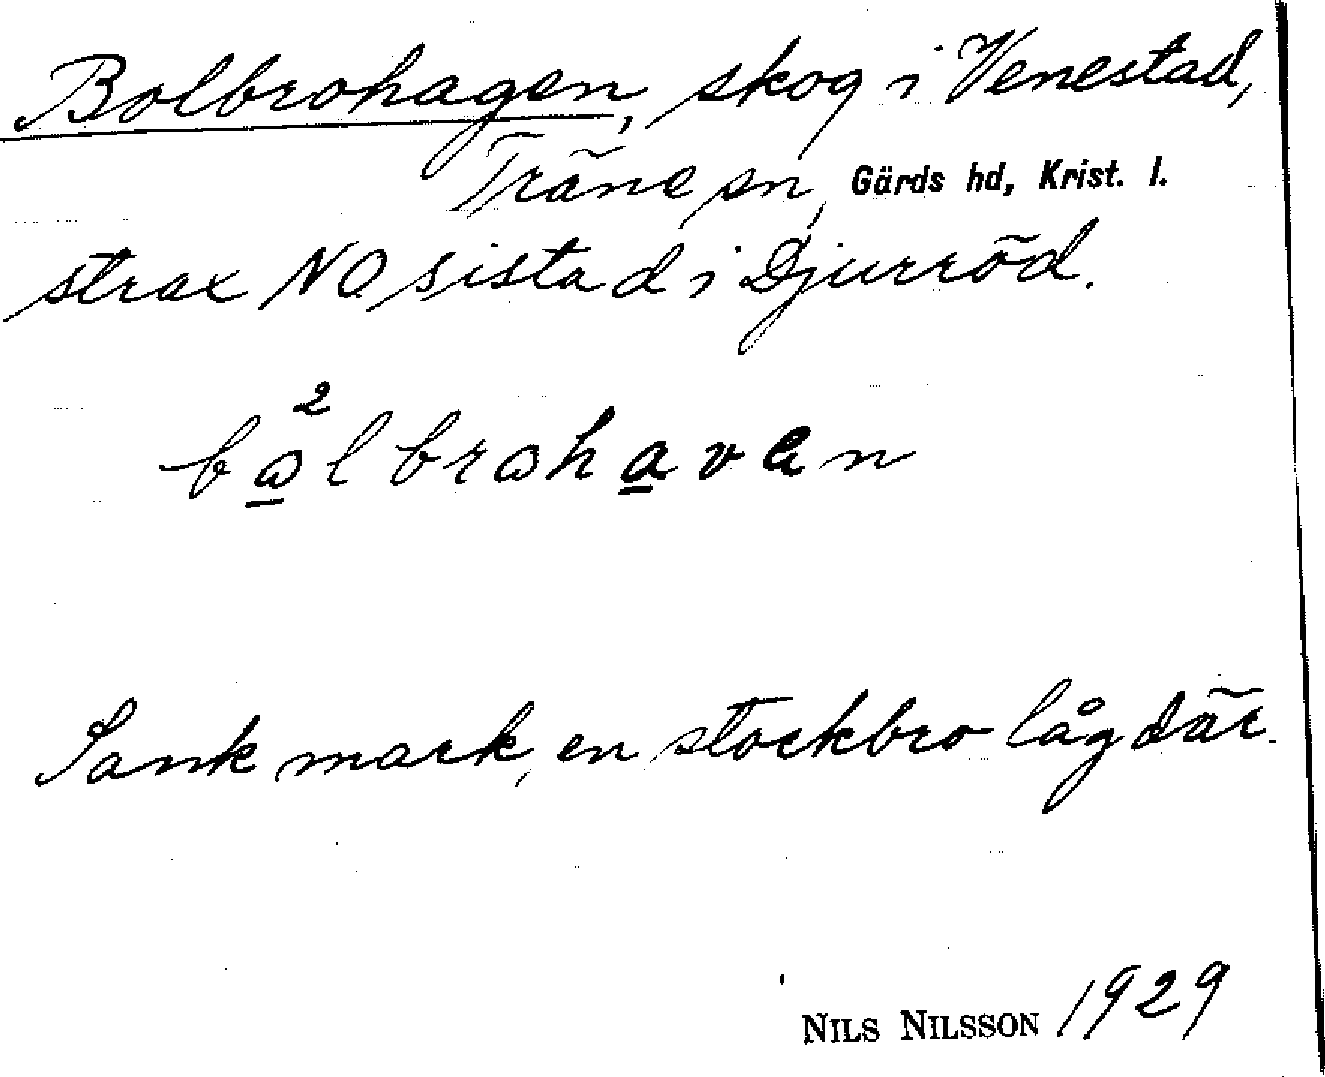 Bolbrohagen, skog i Venestad,
Träne sn, Gärds hd, Krist. l.
strax NO sista d i Djurröd.
bω̲²lbrωha̲van
Sank mark, en stockbro låg där.
NILS NILSSON 1929